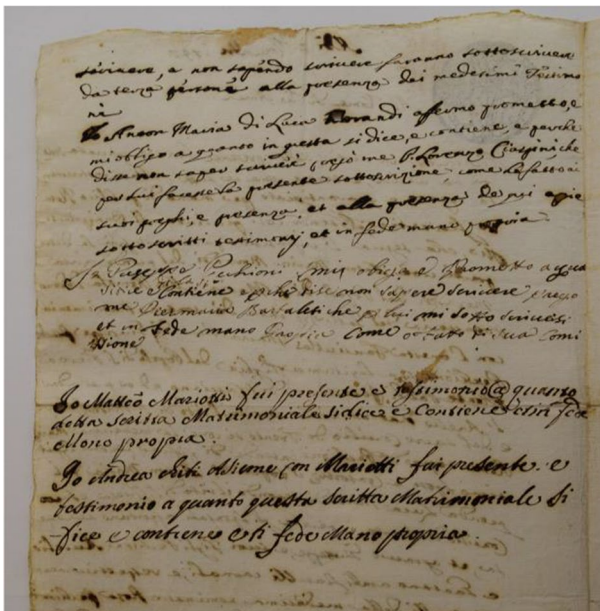 scrivere, e non sapendo scrivere faranno sottoscrivere
da terza persona alla presenza dei medesimi Testimo
ni
Io Anton Maria di Luca Morandi affermo prometto, e
mi obligo a quanto in questa si dice, e contiene, e perche
disse non saper scrivere pregò me P. Lorenzo Ciaspini, che
per lui facesse la presente sottoscrizione, come ho fatto ai
suoi preghi, e presenza, et alla presenza de noi a pie
sottoscritti testimonj, et in fede mano propria
Io Giuseppe mi obligo e Prometto a qua
si dice e Contiene e perche disse non sapere scrivere prego
me Piermaria che p lui mi sotto scrivesi
et in fede mano Propia Come o fatto di sua Comi
sione
Io Matteo Mariotti fui presente e testimonio @ quanto
detta scritta Matrimoniale si dice e Contiene et in fede
Mono propria.
Io Andrea Asieme con Mariotti fui presente. e
testimonio a quanto questa scritta Matrimoniale si
dice e contiene e ti fede Mano propria.